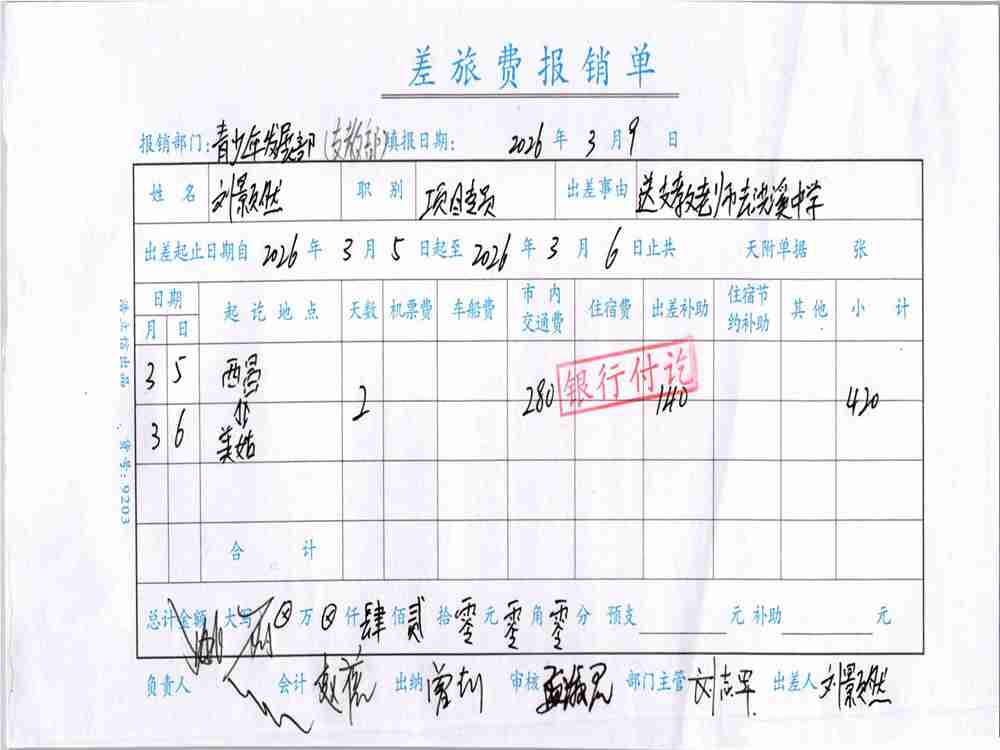 差旅费报销单
报销部门: 青少年发展部 (支教部) 填报日期: 2026 年 3 月 9 日
姓名 刘景然 职别 项目专员 出差事由 送支教老师去洪溪中学
出差起止日期自 2026 年 3 月 5 日起至 2026 年 3 月 6 日止共 天附单据 张
日期 起讫地点 天数 机票费 车船费 市内交通费 住宿费 出差补助 住宿节约补助 其他 小计
月 日
3 5 西昌
2 280 140 420
3 6 美姑
银行付讫
合计
总计金额 大写 ⊗ 万 ⊗ 仟 肆 佰 贰 拾 零 元 零 角 零 分 预支 元 补助 元
负责人 会计 出纳 审核 部门主管 刘志军 出差人 刘景然
货号: 9203